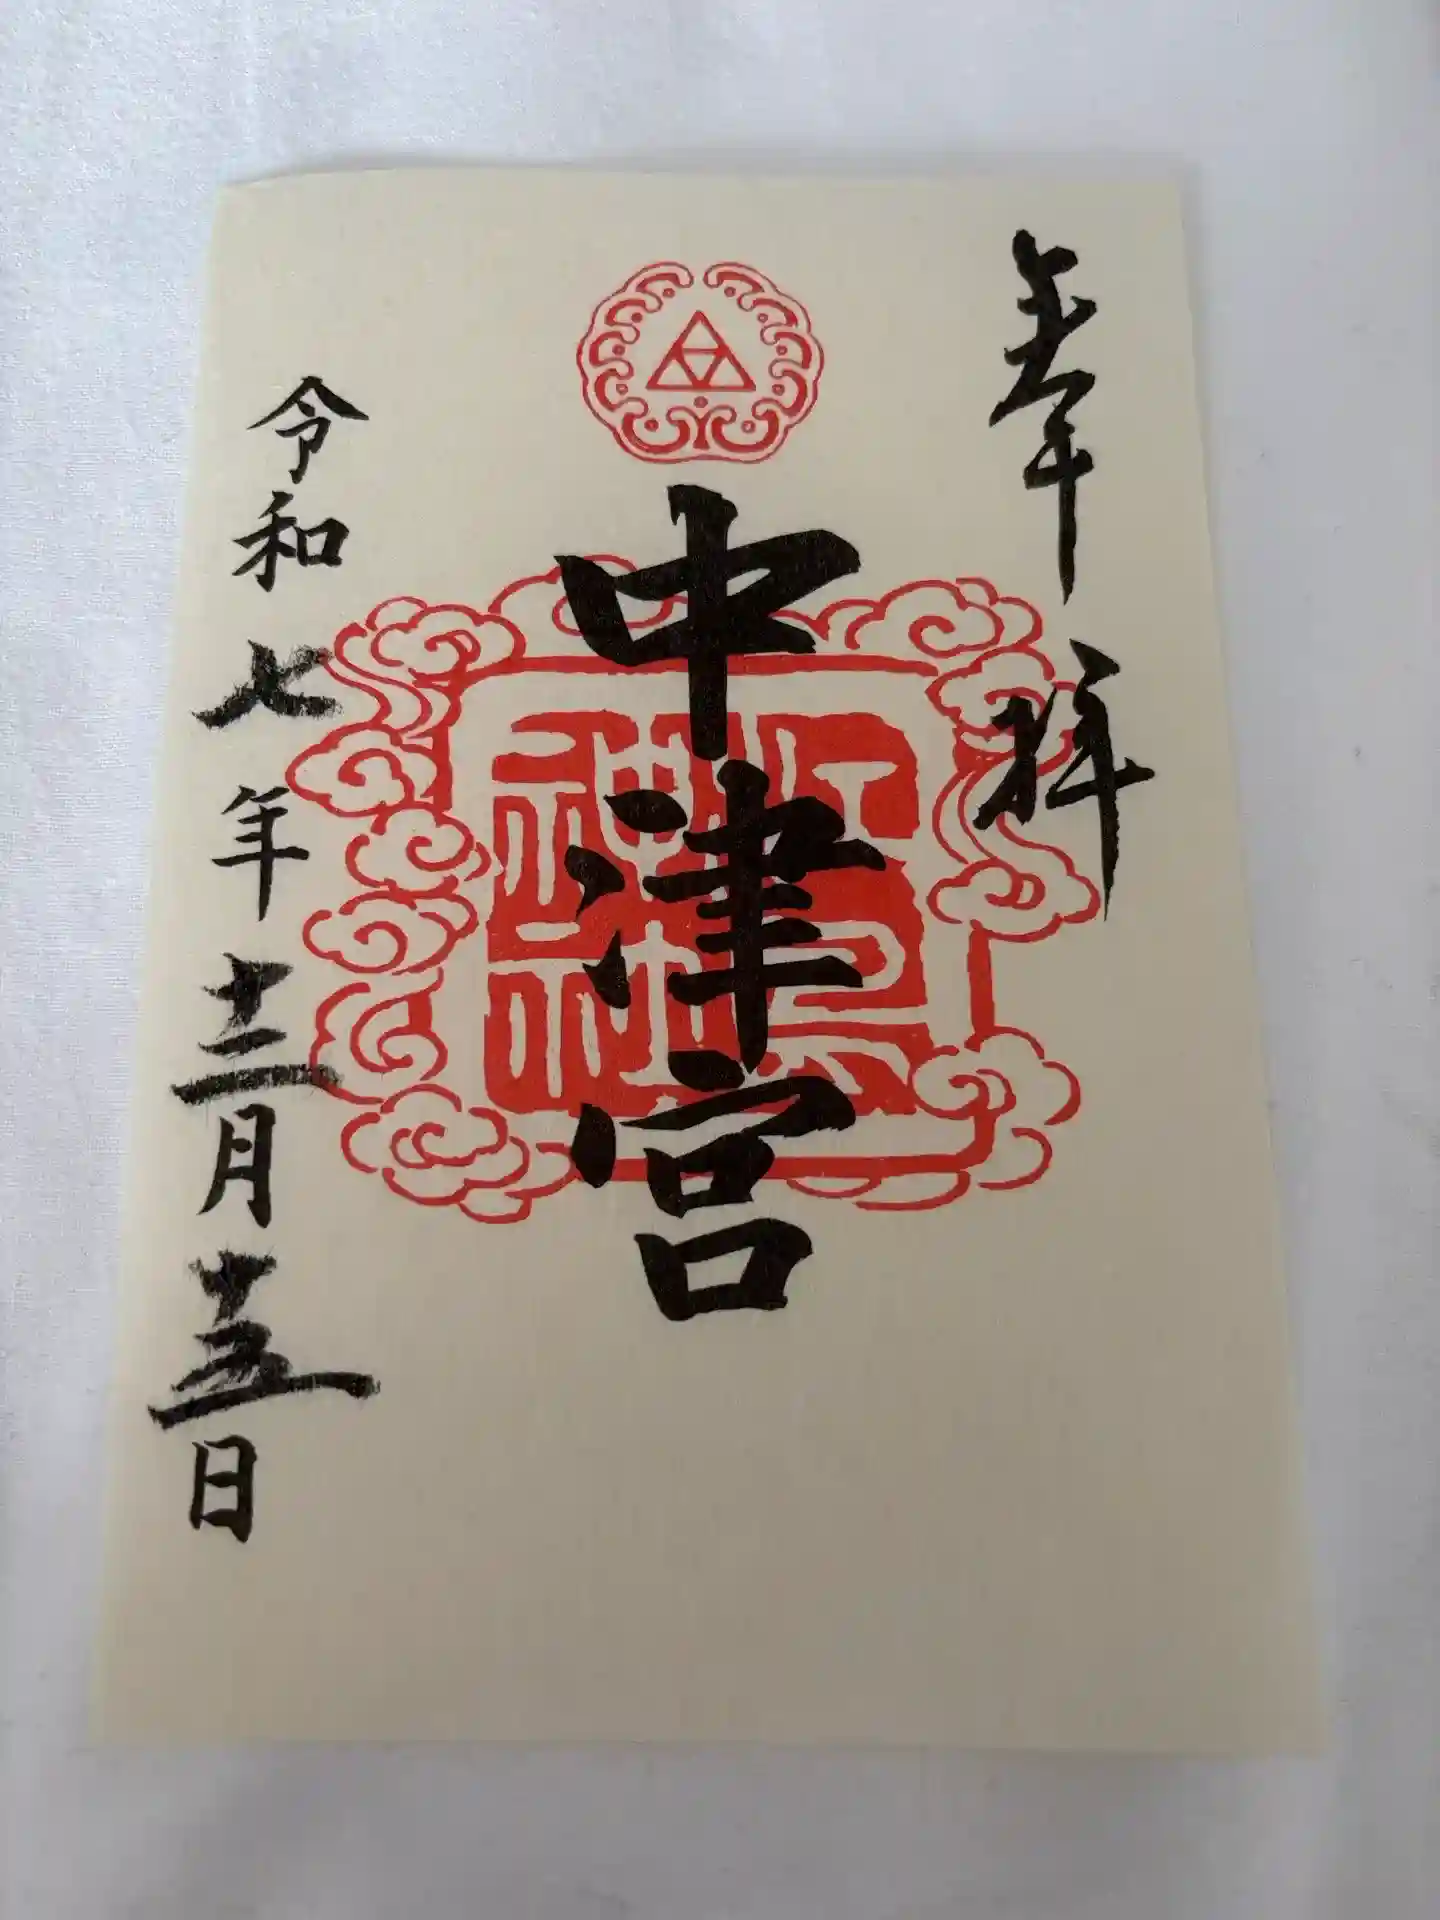 奉拝
中津宮
江島神社
令和七年十二月十五日